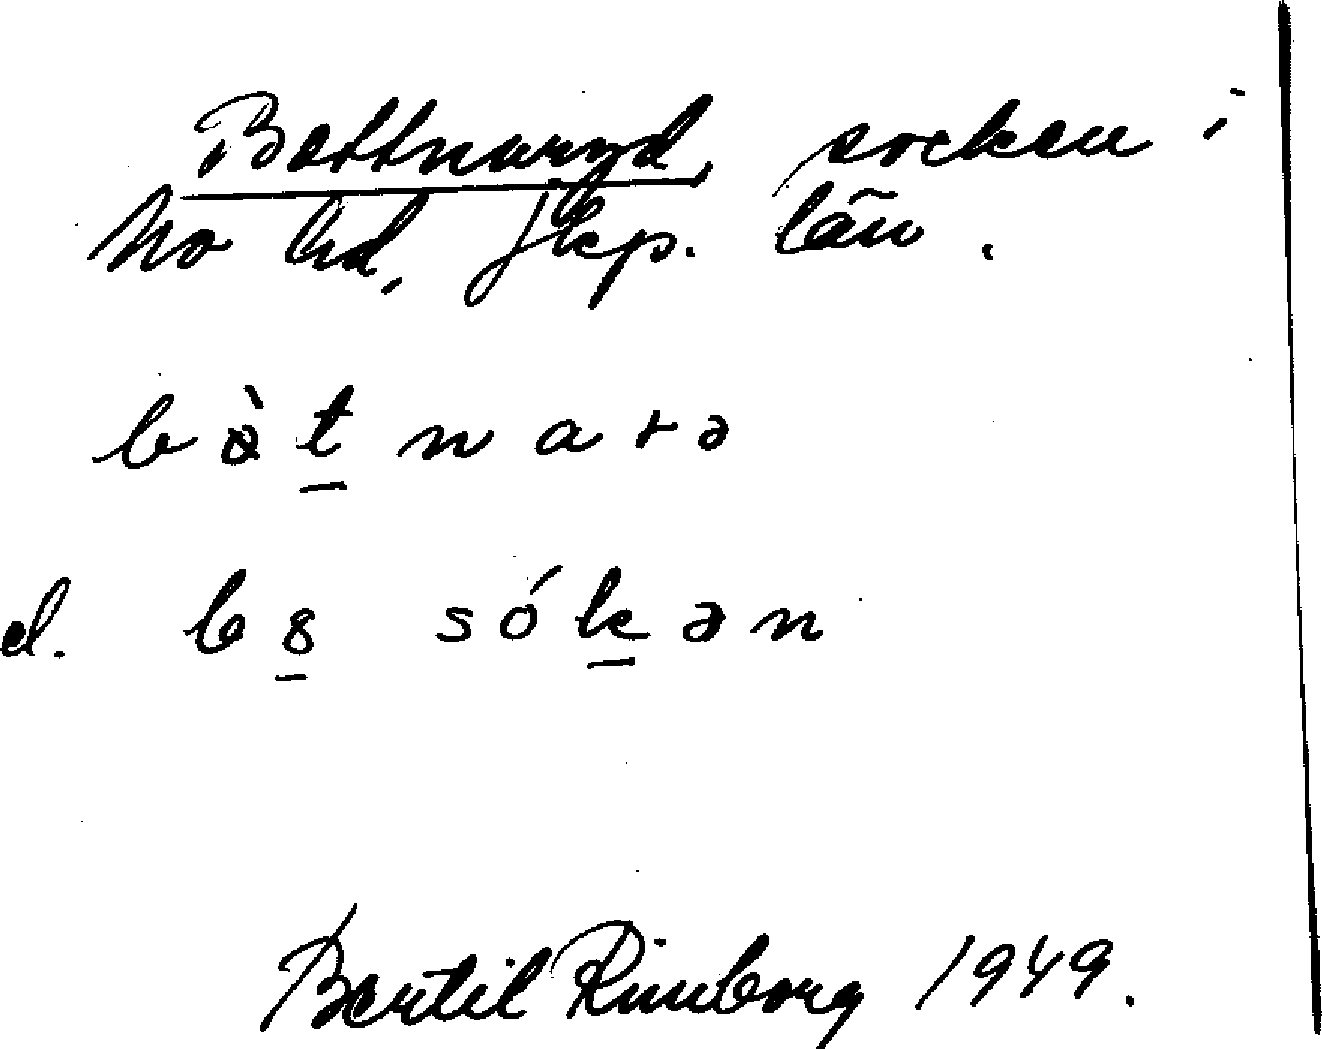 Bottnaryd, socken i
Mo hd, Jkp. län.
bòt̲narə
el. b8̲ sók̲ən
Bertil Rimborg 1949.